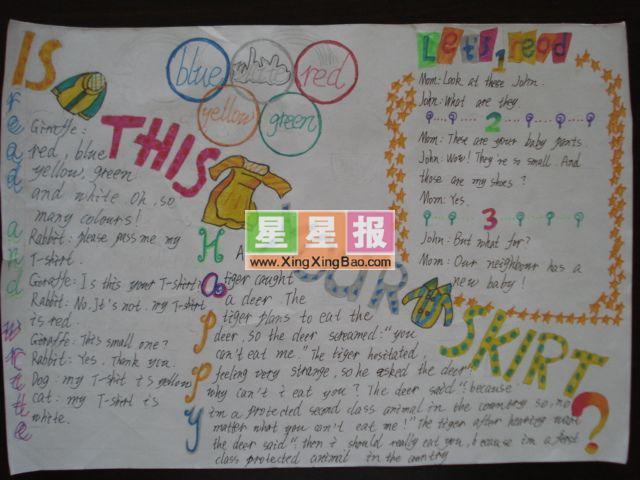 IS
THIS
YOUR
SKIRT
?
blue
white
red
yellow
green
read and write
Giraffe:
red, blue
yellow, green
and white Oh, so
many colours!
Rabbit: please pass me my
T-shirt.
Giraffe: Is this your T-shirt?
Rabbit: No. It's not. my T-shirt
is red.
Giraffe: This small one?
Rabbit: Yes. Thank you.
Dog: my T-shirt is yellow
cat: my T-shirt is
white.
Let's read
1
Mom: Look at these John.
John: What are they
2
Mom: These are your baby pants.
John: Wow! They're so small. And
those are my shoes?
Mom: Yes.
3
John: But what for?
Mom: Our neighbour has a
new baby!
Happy
A
tiger caught
a deer. The
tiger plans to eat the
deer, so the deer screamed: "you
can't eat me." The tiger hesitated
feeling very strange, so he asked the deer:
why can't i eat you? The deer said: because
im a protected second class animal in the country so, no
matter what you can't eat me!" The tiger after hearing
the deer said". then i should really eat you, because im a first
class protected animal in the country
星星报
www.XingXingBao.com